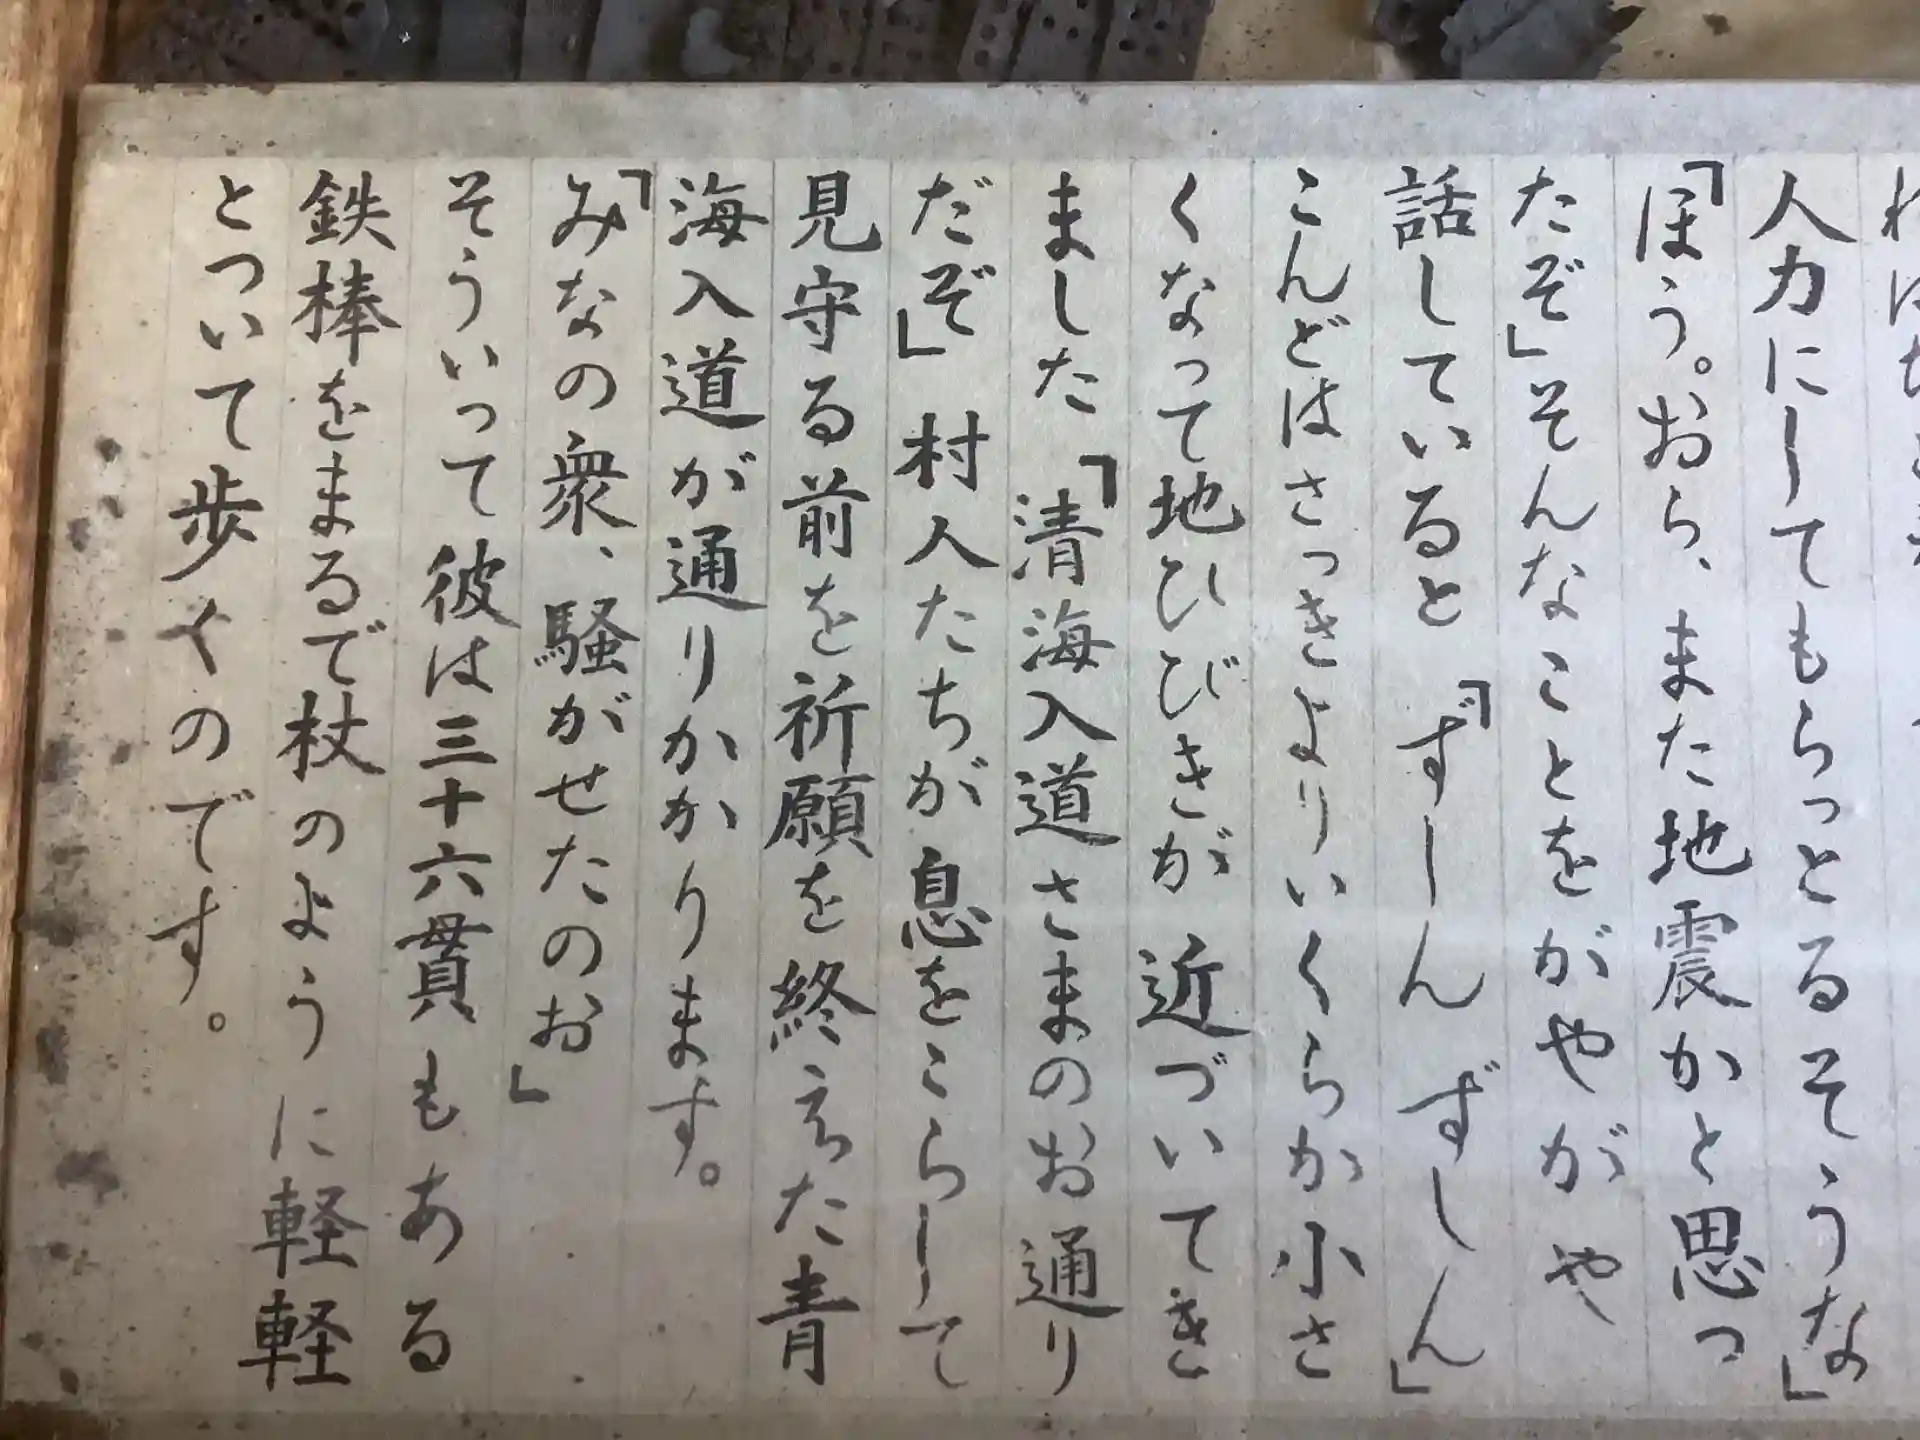 人力にしてもらっとるそうな」
「ほう。おら、また地震かと思っ
たぞ」そんなことをがやがや
話していると「ずしーん ずしん」
こんどはさっきよりいくらか小さ
くなって地ひびきが近づいてき
ました「清海入道さまのお通り
だぞ」村人たちが息をこらして
見守る前を祈願を終えた青
海入道が通りかかります。
「みなの衆、騒がせたのお」
そういって彼は三十六貫もある
鉄棒をまるで杖のように軽軽
とついて歩くのです。